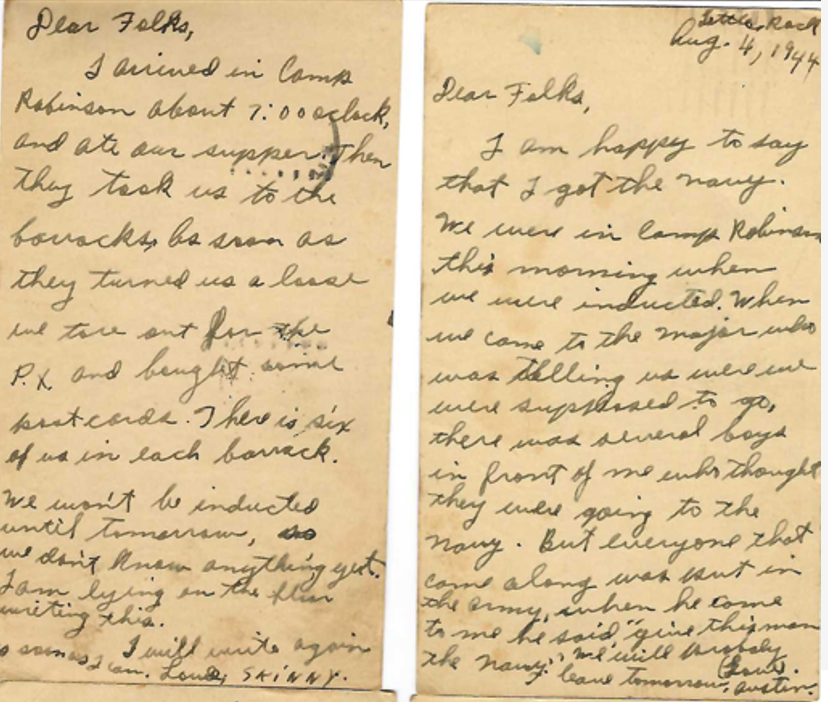 Dear Folks,
I arrived in Camp
Robinson about 7:00 oclock,
and ate our supper. Then
they took us to the
barracks, as soon as
they turned us a loose
we tore out for the
P.X. and bought some
post cards. There is six
of us in each barrack.
We won't be inducted
until tomorrow, so
we don't know anything yet.
I am lying on the floor
writing this.
I will write again
s soon as I can. Love, SKINNY.
Little Rock
Aug. 4, 1944
Dear Folks,
I am happy to say
that I got the navy.
We were in Camp Robinson
this morning when
we were inducted. When
we come to the major who
was telling us were we
were supposed to go,
there was several boys
in front of me who thought
they were going to the
navy. But everyone that
come along was put in
the army, when he come
to me he said, "give this man
the navy." We will probaly
leave tomorrow. Love.
Austin.